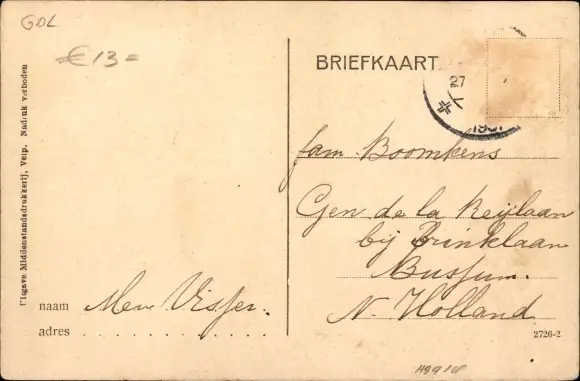 GOL
€ 13 =
BRIEFKAART
27
Uitgave Middenstandsdrukkerij, Velp. Nadruk verboden
fam. Boomkens
Gen de la Reijlaan
bij Brinklaan
Bussum.
N. Holland
naam Mev Visser.
adres
2726-2